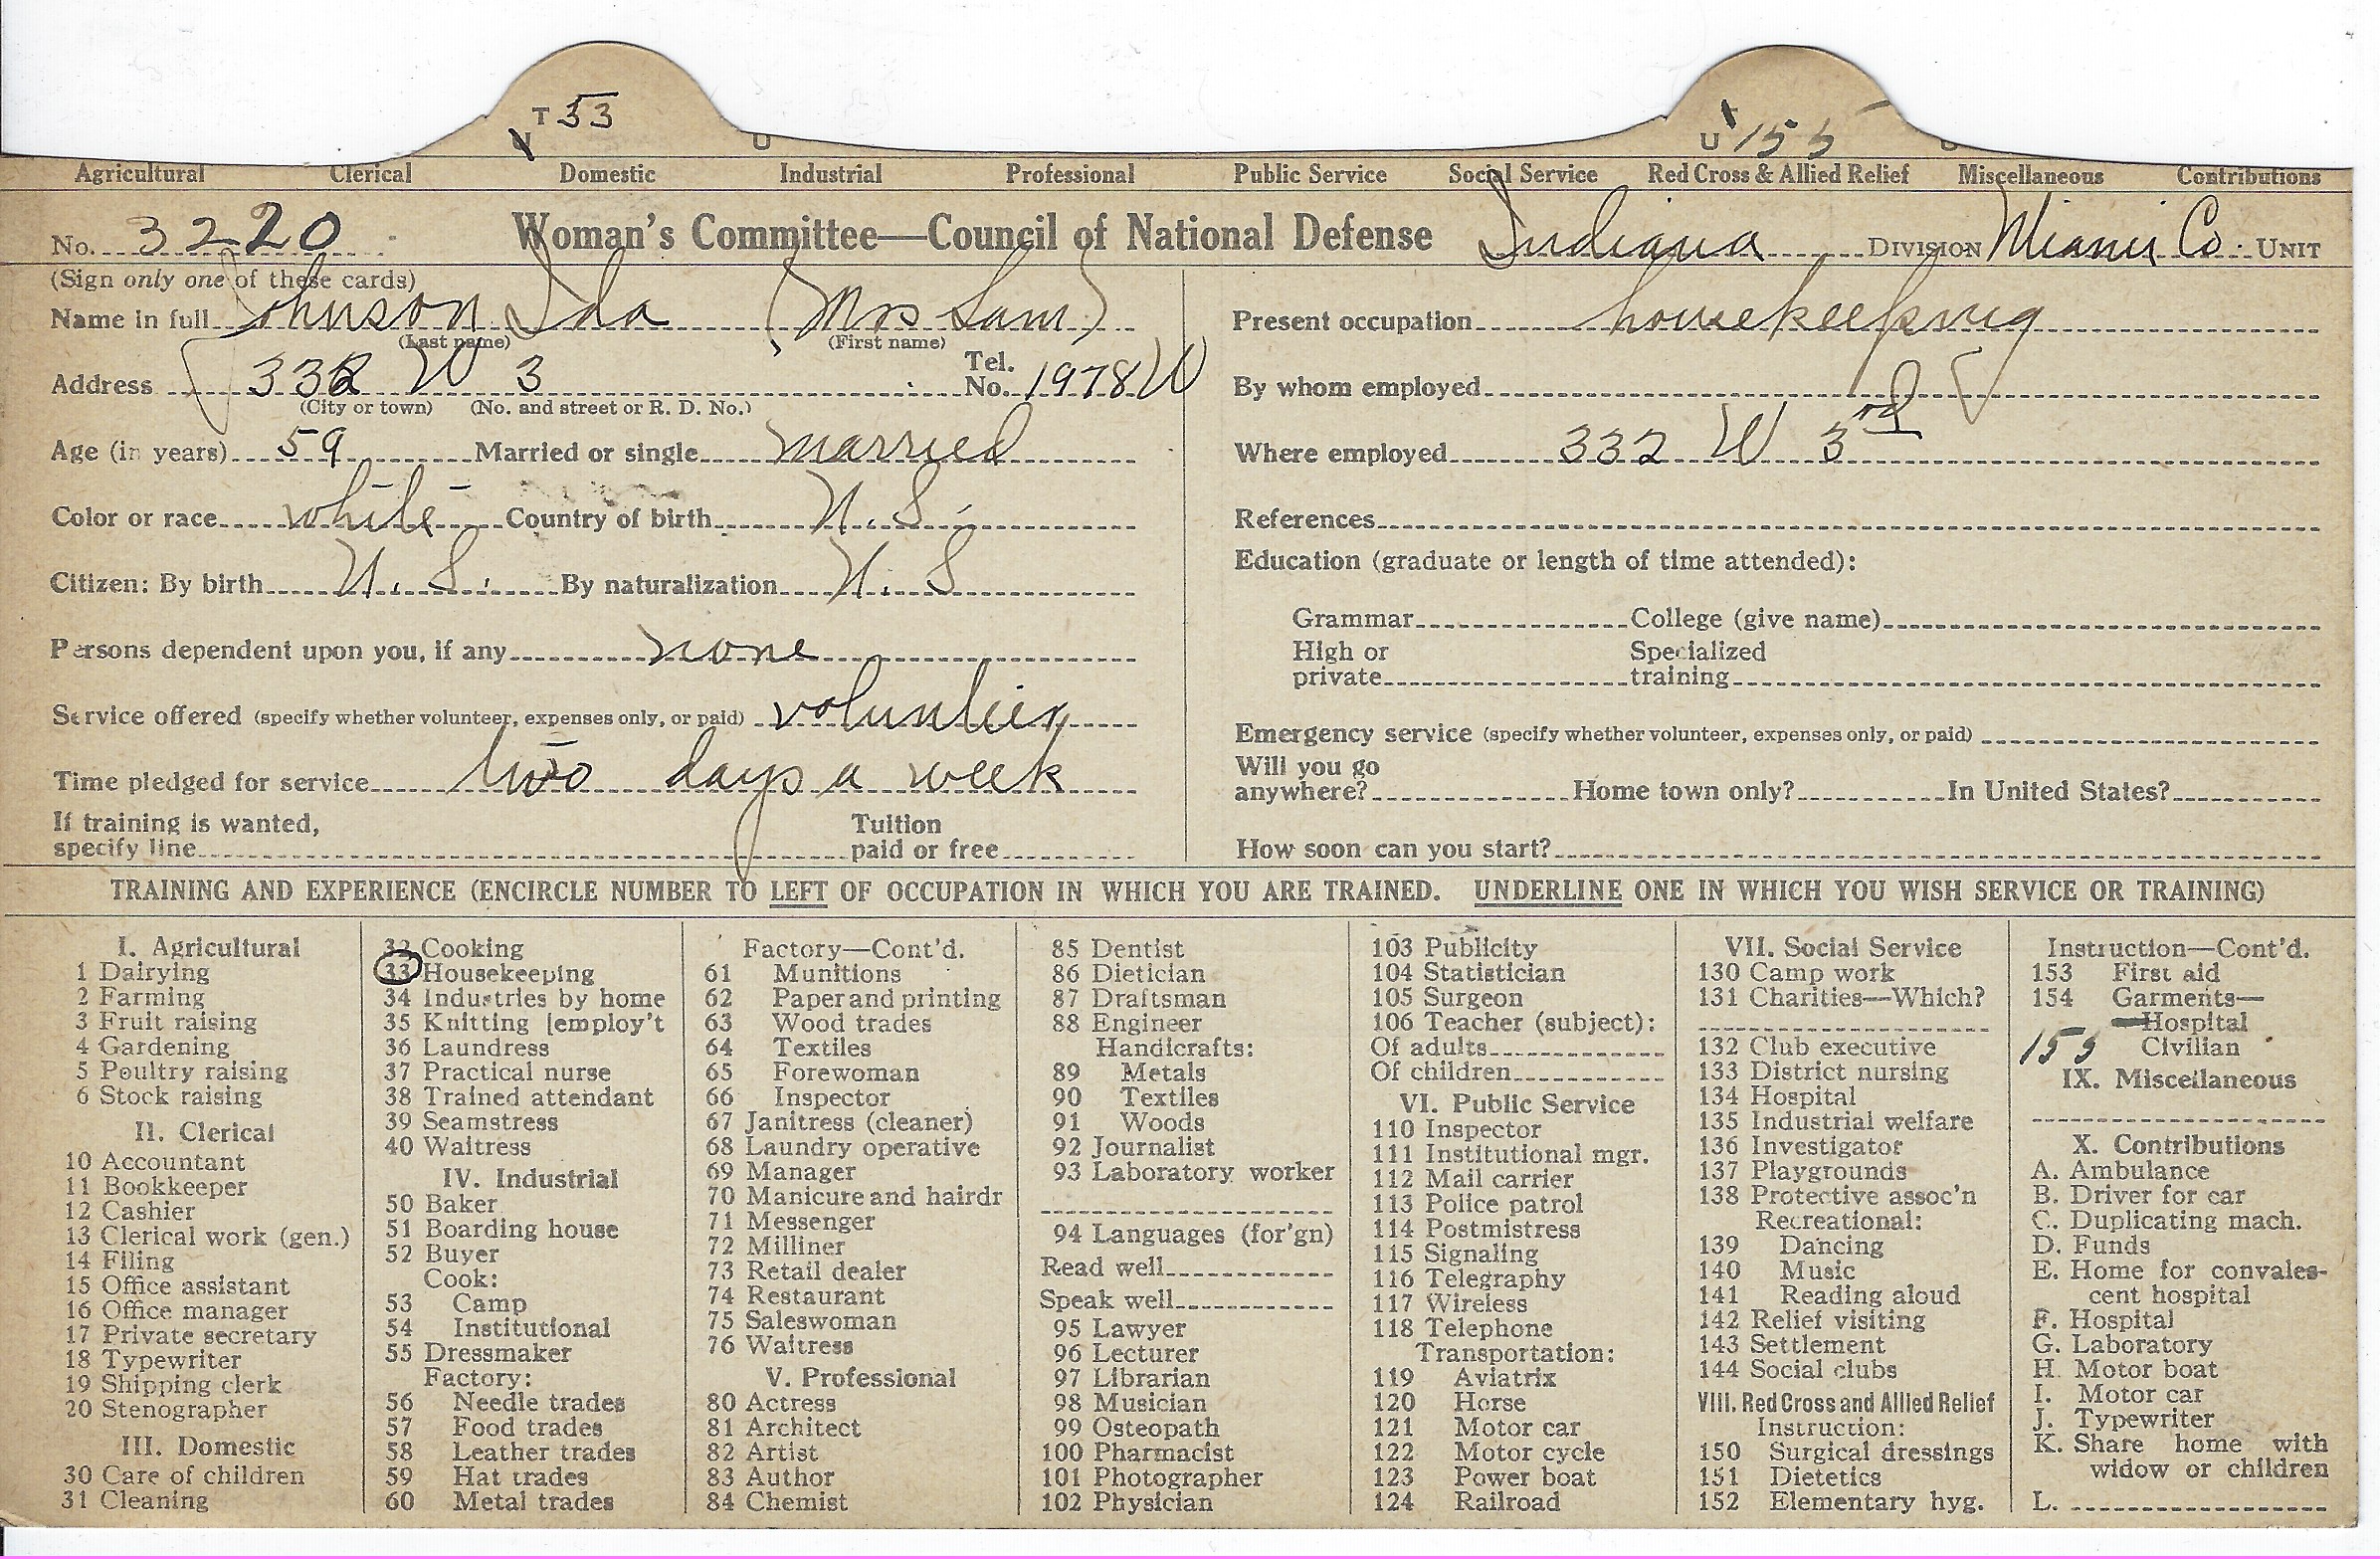 T 53
U
U
U 155
U
Agricultural Clerical Domestic Industrial Professional Public Service Social Service Red Cross & Allied Relief Miscellaneous Contributions
No. 3220 Woman's Committee—Council of National Defense Indiana DIVISION Miami Co. UNIT
(Sign only one of these cards)
Name in full Johnson Ida (Mrs Sam)
(Last name) (First name)
Address 332 W 3 Tel. No. 1978W
(City or town) (No. and street or R. D. No.)
Age (in years) 59 Married or single married
Color or race white Country of birth U. S.
Citizen: By birth U. S. By naturalization U. S
Persons dependent upon you, if any none
Service offered (specify whether volunteer, expenses only, or paid) volunteer
Time pledged for service two days a week
If training is wanted,
specify line Tuition paid or free
Present occupation housekeeping
By whom employed
Where employed 332 W 3rd
References
Education (graduate or length of time attended):
Grammar College (give name)
High or private Specialized training
Emergency service (specify whether volunteer, expenses only, or paid)
Will you go
anywhere? Home town only? In United States?
How soon can you start?
TRAINING AND EXPERIENCE (ENCIRCLE NUMBER TO LEFT OF OCCUPATION IN WHICH YOU ARE TRAINED. UNDERLINE ONE IN WHICH YOU WISH SERVICE OR TRAINING)
I. Agricultural
1 Dairying
2 Farming
3 Fruit raising
4 Gardening
5 Poultry raising
6 Stock raising
II. Clerical
10 Accountant
11 Bookkeeper
12 Cashier
13 Clerical work (gen.)
14 Filing
15 Office assistant
16 Office manager
17 Private secretary
18 Typewriter
19 Shipping clerk
20 Stenographer
III. Domestic
30 Care of children
31 Cleaning
32 Cooking
33 Housekeeping
34 Industries by home
35 Knitting [employ't
36 Laundress
37 Practical nurse
38 Trained attendant
39 Seamstress
40 Waitress
IV. Industrial
50 Baker
51 Boarding house
52 Buyer
Cook:
53 Camp
54 Institutional
55 Dressmaker
Factory:
56 Needle trades
57 Food trades
58 Leather trades
59 Hat trades
60 Metal trades
Factory—Cont'd.
61 Munitions
62 Paper and printing
63 Wood trades
64 Textiles
65 Forewoman
66 Inspector
67 Janitress (cleaner)
68 Laundry operative
69 Manager
70 Manicure and hairdr
71 Messenger
72 Milliner
73 Retail dealer
74 Restaurant
75 Saleswoman
76 Waitress
V. Professional
80 Actress
81 Architect
82 Artist
83 Author
84 Chemist
85 Dentist
86 Dietician
87 Draftsman
88 Engineer
Handicrafts:
89 Metals
90 Textiles
91 Woods
92 Journalist
93 Laboratory worker
94 Languages (for'gn)
Read well
Speak well
95 Lawyer
96 Lecturer
97 Librarian
98 Musician
99 Osteopath
100 Pharmacist
101 Photographer
102 Physician
103 Publicity
104 Statistician
105 Surgeon
106 Teacher (subject):
Of adults
Of children
VI. Public Service
110 Inspector
111 Institutional mgr.
112 Mail carrier
113 Police patrol
114 Postmistress
115 Signaling
116 Telegraphy
117 Wireless
118 Telephone
Transportation:
119 Aviatrix
120 Horse
121 Motor car
122 Motor cycle
123 Power boat
124 Railroad
VII. Social Service
130 Camp work
131 Charities—Which?
132 Club executive
133 District nursing
134 Hospital
135 Industrial welfare
136 Investigator
137 Playgrounds
138 Protective assoc'n
Recreational:
139 Dancing
140 Music
141 Reading aloud
142 Relief visiting
143 Settlement
144 Social clubs
VIII. Red Cross and Allied Relief
Instruction:
150 Surgical dressings
151 Dietetics
152 Elementary hyg.
Instruction—Cont'd.
153 First aid
154 Garments—
Hospital
155 Civilian
IX. Miscellaneous
X. Contributions
A. Ambulance
B. Driver for car
C. Duplicating mach.
D. Funds
E. Home for convales-
cent hospital
F. Hospital
G. Laboratory
H. Motor boat
I. Motor car
J. Typewriter
K. Share home with
widow or children
L.